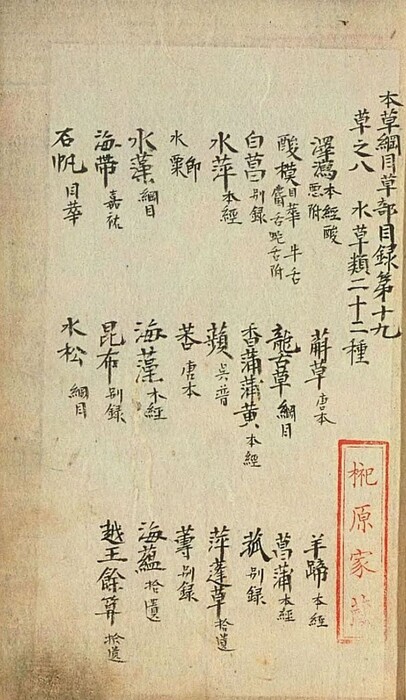 本草綱目草部目錄第十九
草之八 水草類二十二種
澤瀉本經 酸惡附 𦽅草唐本 羊蹄本經
酸模日華 牛舌 麞舌 蛇舌附 龍舌草綱目 菖蒲本經
白菖别錄 香蒲蒲黃本經 菰别錄
水萍本經 蘋吳普 萍蓬草拾遺
水粟即 莕唐本 蓴别錄
水藻綱目 海藻本經 海蘊拾遺
海帶嘉祐 昆布别錄 越王餘筭拾遺
石帆日華 水松綱目
榊原家藏